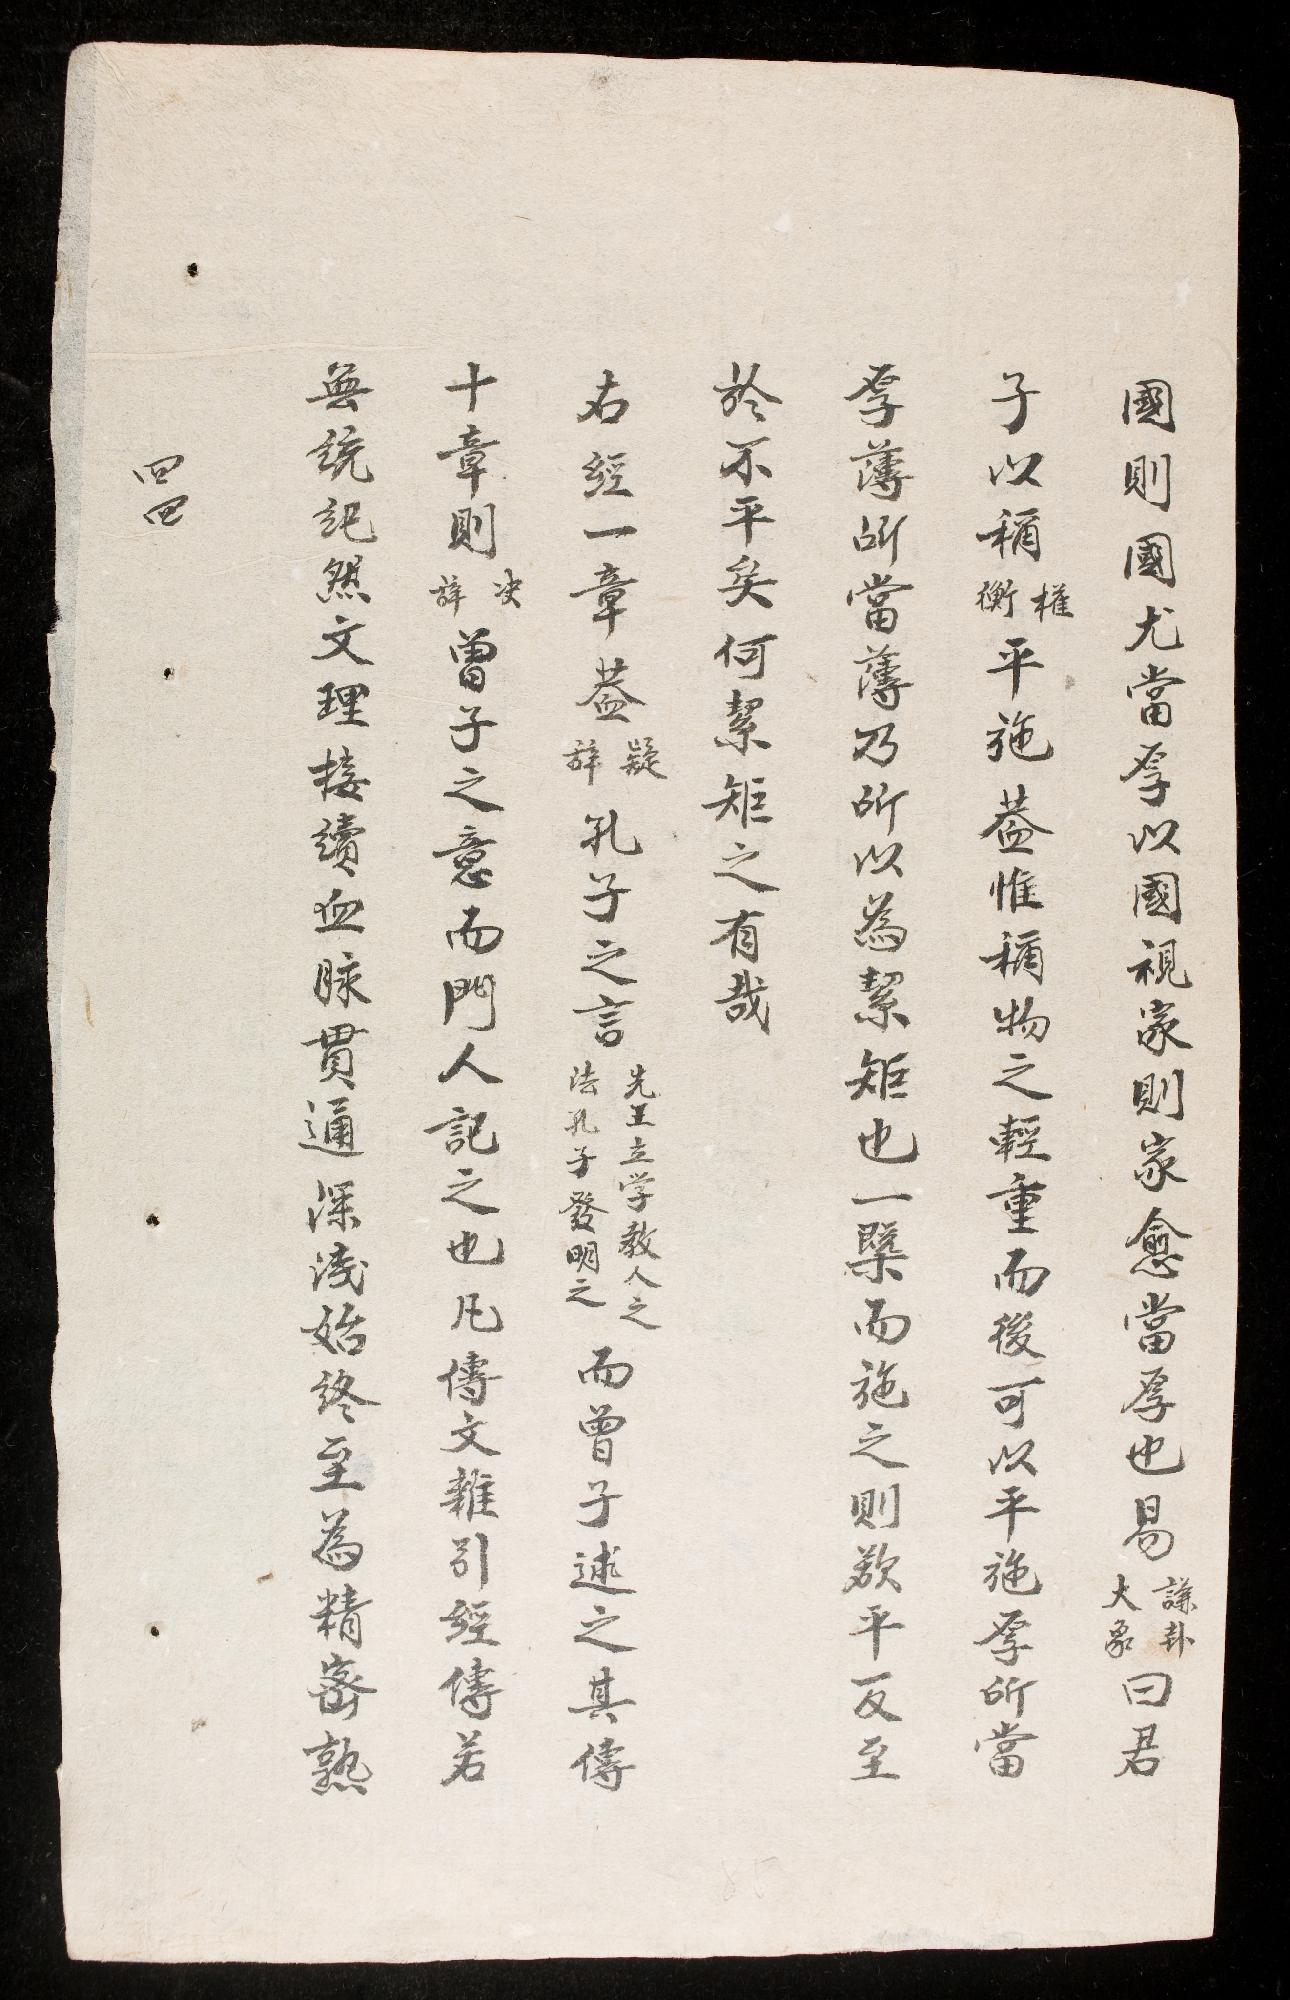 國則國尤當厚以國視家則家愈當厚也易謙卦大象曰君
子以稱權衡平施蓋惟稱物之輕重而後可以平施厚所當
厚薄所當薄乃所以為絜矩也一槩而施之則欲平反至
於不平矣何絜矩之有哉
右經一章蓋疑辞孔子之言先王立学教人之法孔子發明之而曾子述之其傳
十章則决辞曾子之意而門人記之也凡傳文雜引經傳若
無統記然文理接續血脉貫通深淺始終至為精密熟
四四